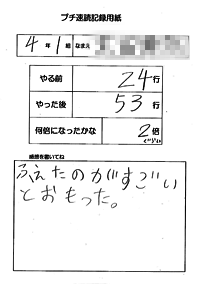 プチ速読記録用紙
4年 1組 なまえ
やる前 24行
やった後 53行
何倍になったかな 2倍
ぐらい
感想を書いてね
ふえたのがすごい
とおもった。